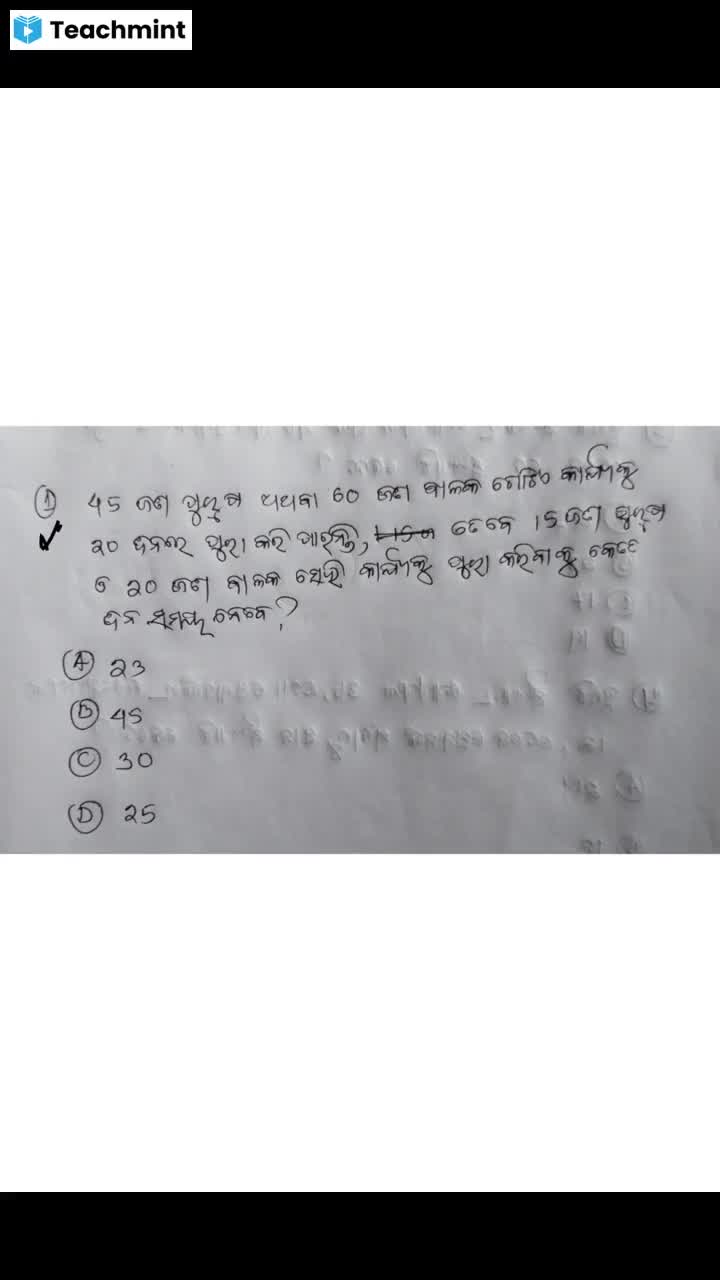 Teachmint
① 45 ଜଣ ପୁରୁଷ ଅଥବା 60 ଜଣ ବାଳକ ଗୋଟିଏ କାର୍ଯ୍ୟକୁ
20 ଦିନରେ ପୁରା କରି ପାରନ୍ତି, ତେବେ 15 ଜଣ ପୁରୁଷ
ଓ 20 ଜଣ ବାଳକ ସେହି କାର୍ଯ୍ୟକୁ ପୁରା କରିବାକୁ କେତେ
ଦିନ ସମୟ ନେବେ?
Ⓐ 23
Ⓑ 45
Ⓒ 30
Ⓓ 25